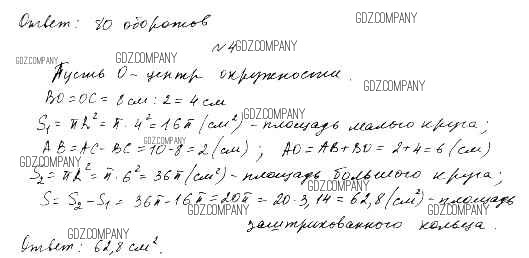 Ответ: 80 оборотов
GDZ.COMPANY
№4 GDZ.COMPANY
GDZ.COMPANY GDZ.COMPANY
Пусть O - центр окружности.
GDZ.COMPANY
BO = OC = 8 см : 2 = 4 см
GDZ.COMPANY
S₁ = πR² = π · 4² = 16π (см²) - площадь малого круга;
GDZ.COMPANY
AB = AC - BC = 10 - 8 = 2 (см); AO = AB + BO = 2 + 4 = 6 (см)
GDZ.COMPANY
S₂ = πR² = π · 6² = 36π (см²) - площадь большого круга;
GDZ.COMPANY
S = S₂ - S₁ = 36π - 16π = 20π = 20 · 3,14 = 62,8 (см²) - площадь
GDZ.COMPANY GDZ.COMPANY
заштрихованного кольца.
GDZ.COMPANY
Ответ: 62,8 см².